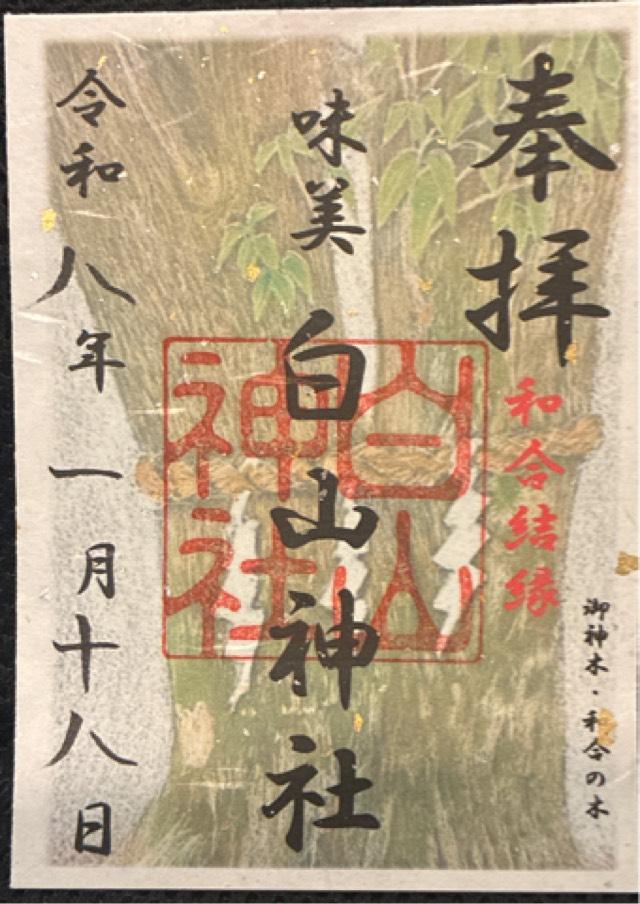 奉拝
和合結縁
御神木・和合の木
味美 白山神社
白山神社
令和八年一月十八日